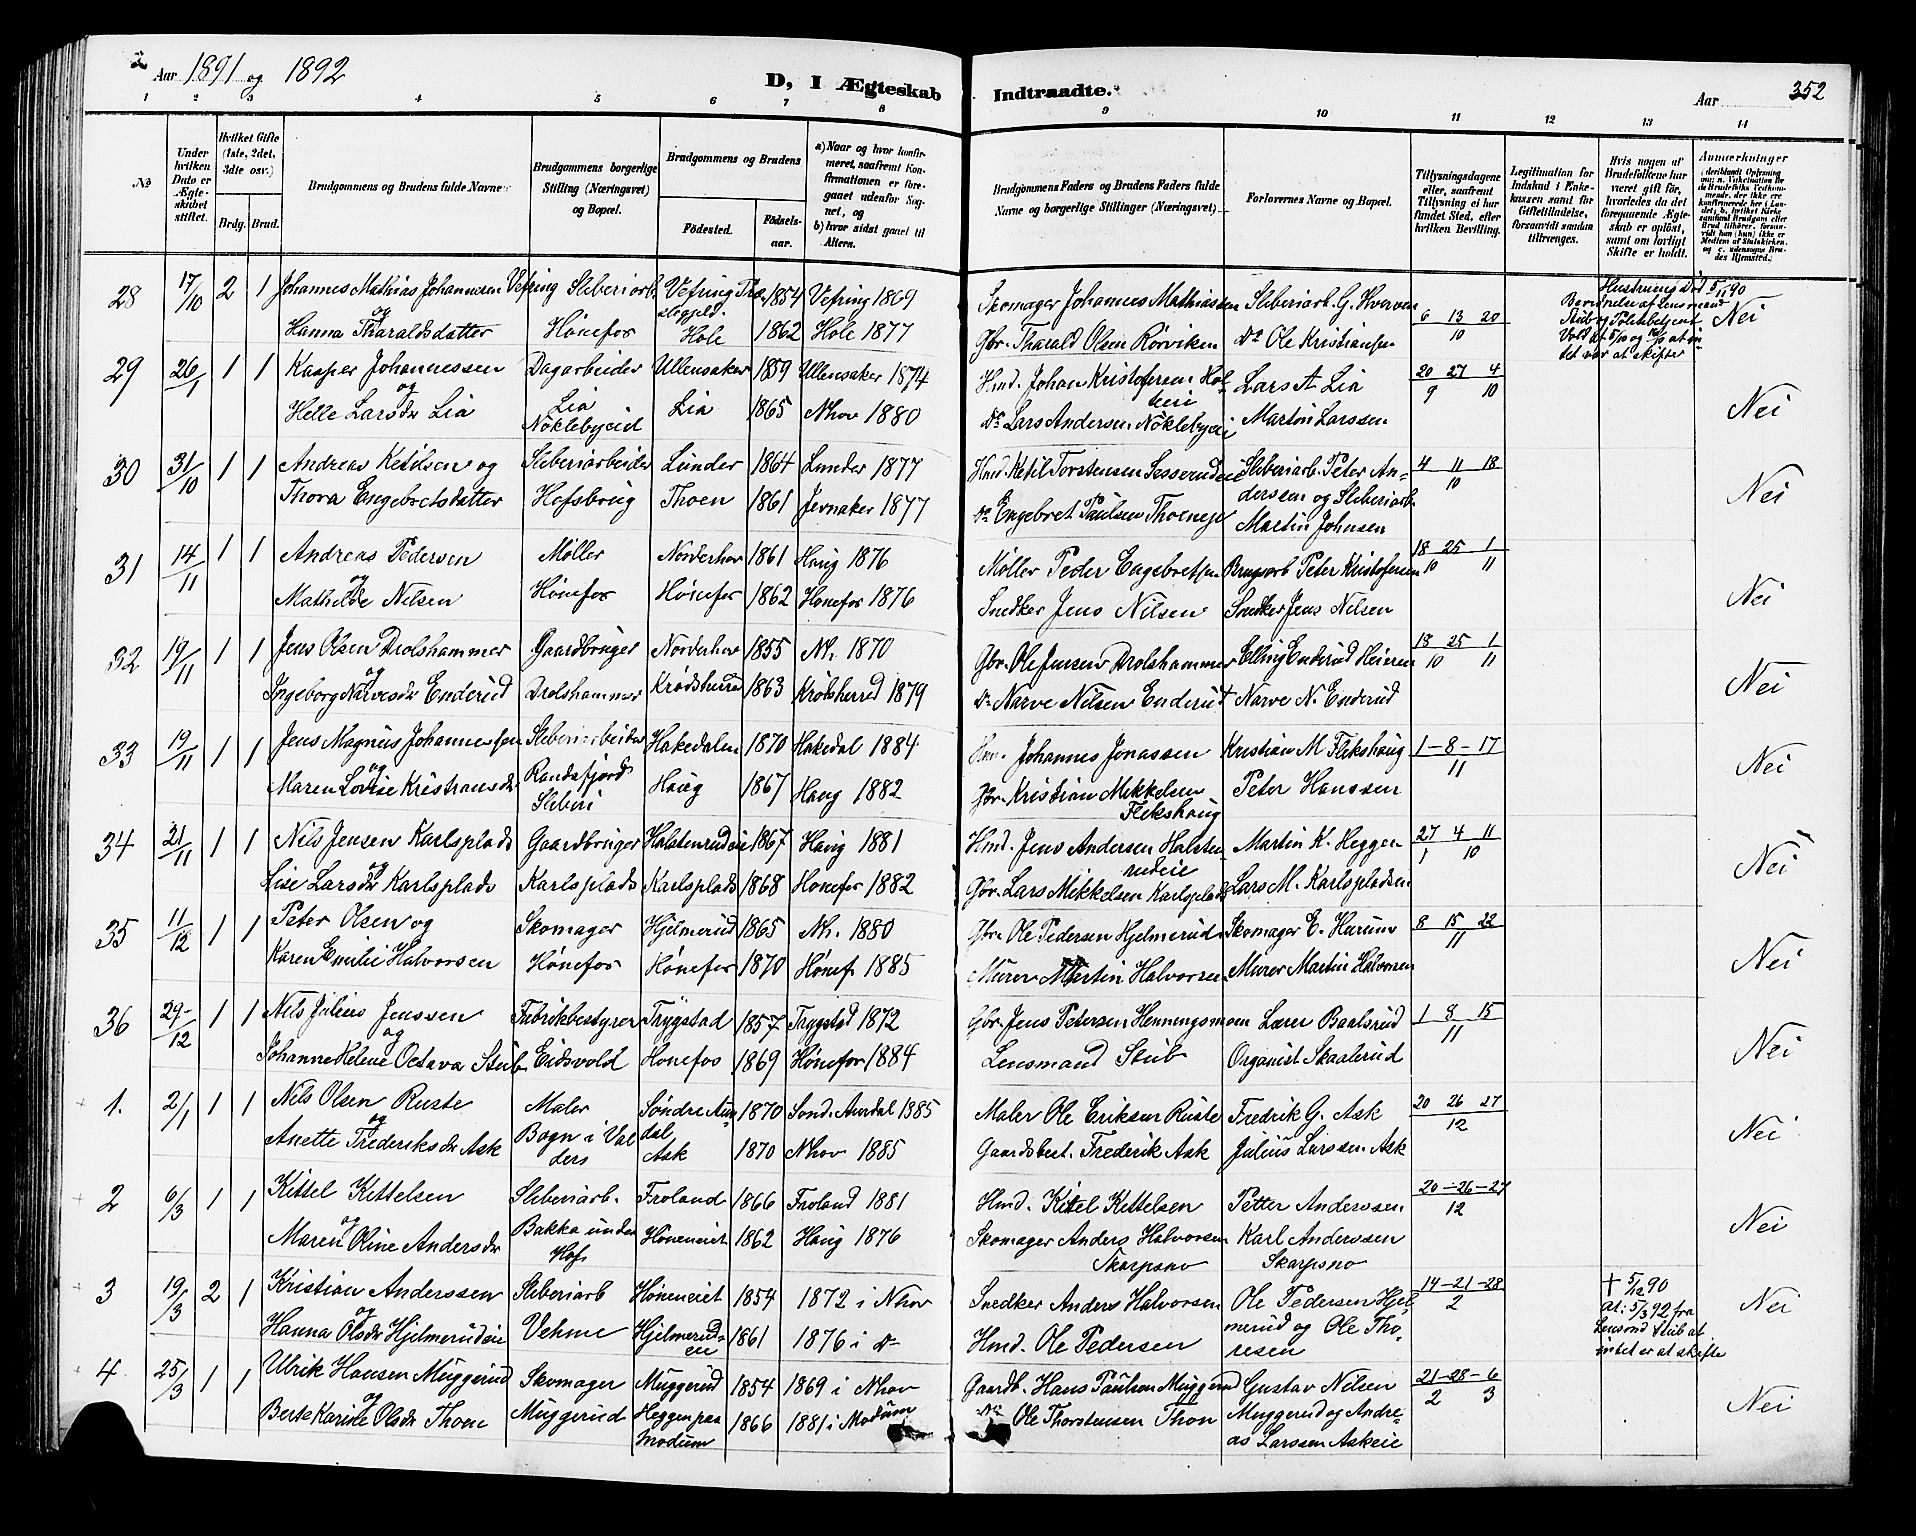 Aar 1891 og 1892
D, I Ægteskab Indtraadte.
Aar 352
1 2 3 4 5 6 7 8 9 10 11 12 13 14
No
Under hvilken Dato er Ægteskabet stiftet.
Hvilket Gifte (1ste, 2det, 3die osv.)
Brdg. Brud.
Brudgommens og Brudens fulde Navne
Brudgommens borgerlige Stilling (Næringsvei) og Bopæl.
Brudgommens og Brudens
Fødested. Fødselsaar.
a) Naar og hvor konfirmeret, saafremt Konfirmationen er foregaaet udenfor Sognet, og
b) hvor sidst gaaet til Alters.
Brudgommens Faders og Brudens Faders fulde Navne og borgerlige Stillinger (Næringsvei).
Forlovernes Navne og Bopæl.
Tillysningsdagene eller, saafremt Tillysning ei har fundet Sted, efter hvilken Bevilling.
Legitimation for Indskud i Enkekassen samt for Giftetilladelse, forsaavidt saadan tiltrænges.
Hvis nogen af Brudefolkene har været gift før, hvorledes da det foregaaende Ægteskab er opløst, samt om lovligt Skifte er holdt.
Anmærkninger
28 17/10 2 1 Johannes Mathias Johannesen Vefsing Sliberiarb. Vefring 1854 Vefring 1869 Skomager Johannes Mathiassen Sliberiarb. G. Hverven 6 13 20 Nei
og
Hanna Tharaldsdatter Hønefos Hole 1862 Hole 1877 Gbr. Tharald Olsen Rørviken Do Ole Kristiansen 10
29 26/1 1 1 Kasper Johannessen Dagarbeider Ullensaker 1859 Ullensaker 1874 Hmd. Johan Kristofersen Lars A. Lia 20 27 4 Nei
og
Helle Larsdr Lia Lia Nøklebyeid Lia 1865 Nhov 1880 Do Lars Andersen Nøklebyei Martin Larssen 9 10
30 31/10 1 1 Andreas Ketilsen og Sliberiarbeider Lunder 1864 Lunder 1877 Hmd. Ketil Torstensen Sliberiarb. Peter An- 4 11 18 Nei
Thora Engebretsdatter Hofsbrug Thoen 1861 Jevnaker 1877 Do Engebret Paulsen Thoeneje derssen og Sliberiarb. 10
Martin Johnsen
31 14/11 1 1 Andreas Pedersen Møller Norderhov 1861 Haug 1876 Møller Peder Engebretsen Brugsarb Peter Kristofersen 18 25 1 Nei
og
Mathilde Nilsen Hønefos Hønefos 1862 Hønefos 1876 Snedker Jens Nilsen Snedker Jens Nilsen 10 11
32 19/11 1 1 Jens Olsen Drolshammer Gaardbruger Norderhov 1855 Nh. 1870 Gbr. Ole Jensen Drolshammer Elling Enderud Heieren 18 25 1 Nei
og
Ingeborg Narvesdr Enderud Drolshammer Krødsherred 1863 Krødsherred 1879 Do Narve Nilsen Enderud Narve N. Enderud 10 11
33 19/11 1 1 Jens Magnus Johannessen Sliberiarbeider Hakedalen 1870 Hakedal 1884 Hm. Johannes Jonassen Kristian M Flekshaug 1-8-17 Nei
og
Maren Lovise Kristiansdr Randsfjord Sliberi Haug 1867 Haug 1882 Gbr. Kristian Mikkelsen Flekshaug Peter Hanssen 11
34 21/11 1 1 Nils Jensen Karlsplads Gaardbruger Halstenrudeie 1867 Haug 1881 Hmd. Jens Andersen Halsten- Martin K. Heggen 27 4 11 Nei
og rudeie
Lise Larsdr Karlsplads Karlsplads Karlsplads 1868 Hønefos 1882 Gbr. Lars Mikkelsen Karlsplads Lars M. Karlspladsen 1 10
35 11/12 1 1 Peter Olsen og Skomager Hjelmerud 1865 Nh. 1880 Gbr. Ole Pedersen Hjelmerud Skomager E. Hurum 8 15 22 Nei
Karen Emilie Halvorsen Hønefos Hønefos 1870 Hønef. 1885 Murer Martin Halvorsen Murer Martin Halvorsen 11
36 29/12 1 1 Nils Julius Jenssen Fabrikbestyrer Trygstad 1857 Trygstad 1872 Gbr. Jens Petersen Hennings Lærer Baalsrud 1 8 15 Nei
og
Johanne Helene Octava Stub Eidsvold Hønefos 1869 Hønefos 1884 Lensmand Stub Organist Skaalerud 11
1. 2/1 1 1 Nils Olsen Ruste Maler Søndre Aurdal 1870 Sønd. Aurdal 1885 Maler Ole Eriksen Ruste Fredrik G. Ask 20 26 27 Nei
og
Anette Frederiksdr Ask Bagn i Valders Ask 1870 Nhov 1885 Gaardsbest. Frederik Ask Julius Larssen Ask 12
2 6/3 1 1 Kittel Kittelsen Sliberiarb. Froland 1866 Froland 1881 Hmd. Kittel Kittelsen Petter Anderssen 20-26-27 Nei
og
Maren Oline Andersdr Bakka under Hofs Høneneiet 1862 Haug 1876 Skomager Anders Halvorsen Karl Anderssen 12
Skarpsno Skarpsno
3 19/3 2 1 Kristian Anderssen Sliberiarb Høneneiet 1854 1872 i Nhov Snedker Anders Halvorsen Ole Pedersen Hjel- 14-21-28 † 5/12 90 Nei
og merud og Ole Tho- 2 at: 5/3 92 fra
Hanna Olsdr Hjelmerudeie Vehme Hjelmerudeie 1861 1876 i do Hmd. Ole Pedersen resen Lensmd Stub at
intet er at skifte
4 25/3 1 1 Ulrik Hansen Muggerud Skomager Muggerud 1854 1869 i Nhov Gaardb. Hans Paulsen Muggerud Gustav Nilsen 21-28-6 Nei
og
Berte Karine Olsdr Thoen Muggerud Heggen paa Modum 1866 1881 i Modum Do Ole Thorstensen Thon Muggerud og Andre- 2 3
as Larssen Askeie